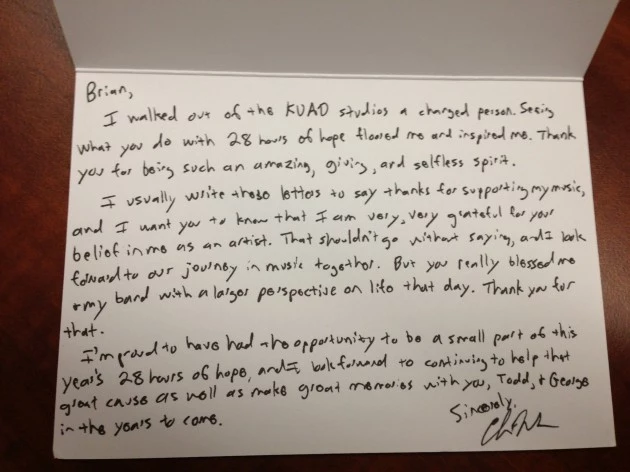 Brian,
I walked out of the KUAD studios a changed person. Seeing
what you do with 28 hours of hope floored me and inspired me. Thank
you for being such an amazing, giving, and selfless spirit.
I usually write these letters to say thanks for supporting my music,
and I want you to know that I am very, very grateful for your
belief in me as an artist. That shouldn't go without saying, and I look
forward to our journey in music together. But you really blessed me
+ my band with a larger perspective on life that day. Thank you for
that.
I'm proud to have had the opportunity to be a small part of this
year's 28 hours of hope, and I look forward to continuing to help that
great cause as well as make great memories with you, Todd, + George
in the years to come.
Sincerely,